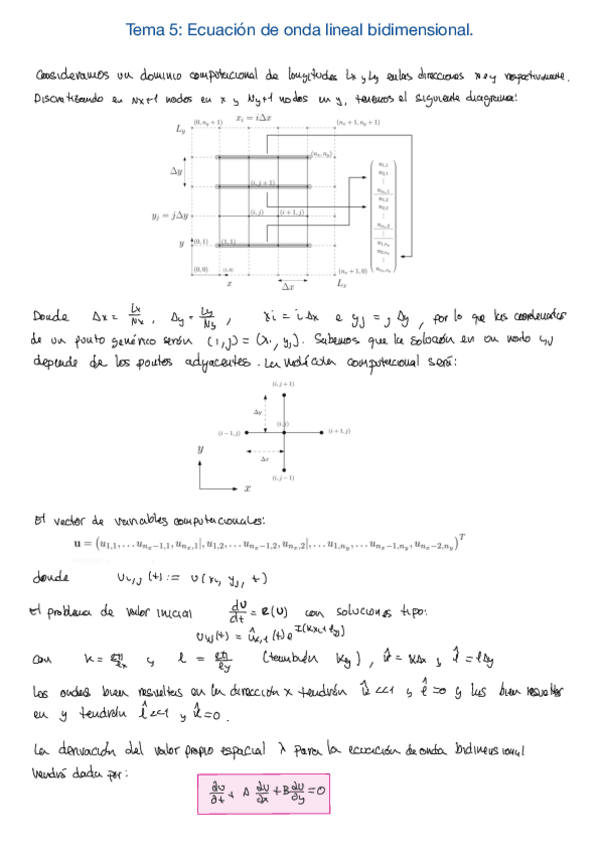 Tema 5: Ecuación de onda lineal bidimensional.
Consideramos un dominio computacional de longitudes Lx y Ly en las direcciones x e y respectivamente.
Discretizando en Nx+1 nodos en x y Ny+1 nodos en y, tenemos el siguiente diagrama:
(0, n_y + 1) x_i = iΔx (n_x + 1, n_y + 1)
L_y
(n_x, n_y)
Δy
(i, j + 1)
y_j = jΔy (i, j) (i + 1, j)
y (0, 1) (1, 1)
(0, 0) (n_x + 1, 0)
x Δx L_x
u_{1,1}
u_{2,1}
⋮
u_{n_x,1}
u_{1,2}
u_{2,2}
⋮
u_{n_x,2}
⋮
u_{1,n_y}
u_{2,n_y}
⋮
u_{n_x,n_y}
Donde Δx = Lx/Nx, Δy = Ly/Ny, xi = i Δx e yj = j Δy, por lo que las coordenadas
de un punto genérico serán (i,j) = (xi, yj). Sabemos que la solución en un nodo i,j
depende de los puntos adyacentes. La molécula computacional será:
(i, j + 1)
Δy
(i, j)
(i − 1, j) (i + 1, j)
Δx
y
(i, j − 1)
x
El vector de variables computacionales:
u = (u_{1,1}, … u_{n_x−1,1}, u_{n_x,1}|, u_{1,2}, … u_{n_x−1,2}, u_{n_x,2}|, … u_{1,n_y}, … u_{n_x−1,n_y}, u_{n_x−2,n_y})^T
donde Ui,j (t) := U(xi, yj, t)
El problema de valor inicial dU/dt = R(U) con soluciones tipo:
(t) = û (t) e^{I(kxi + lyj)}
con k = y l = (también ky), k̂ = kΔx, l̂ = lΔy
Las ondas bien resueltas en la dirección x tendrán k̂ <<1 y l̂ =0 y las bien resueltas
en y tendrán l̂ <<1 y k̂ =0.
La derivación del valor propio espacial λ para la ecuación de onda bidimensional
vendrá dada por:
∂U/∂t + A ∂U/∂x + B ∂U/∂y = 0